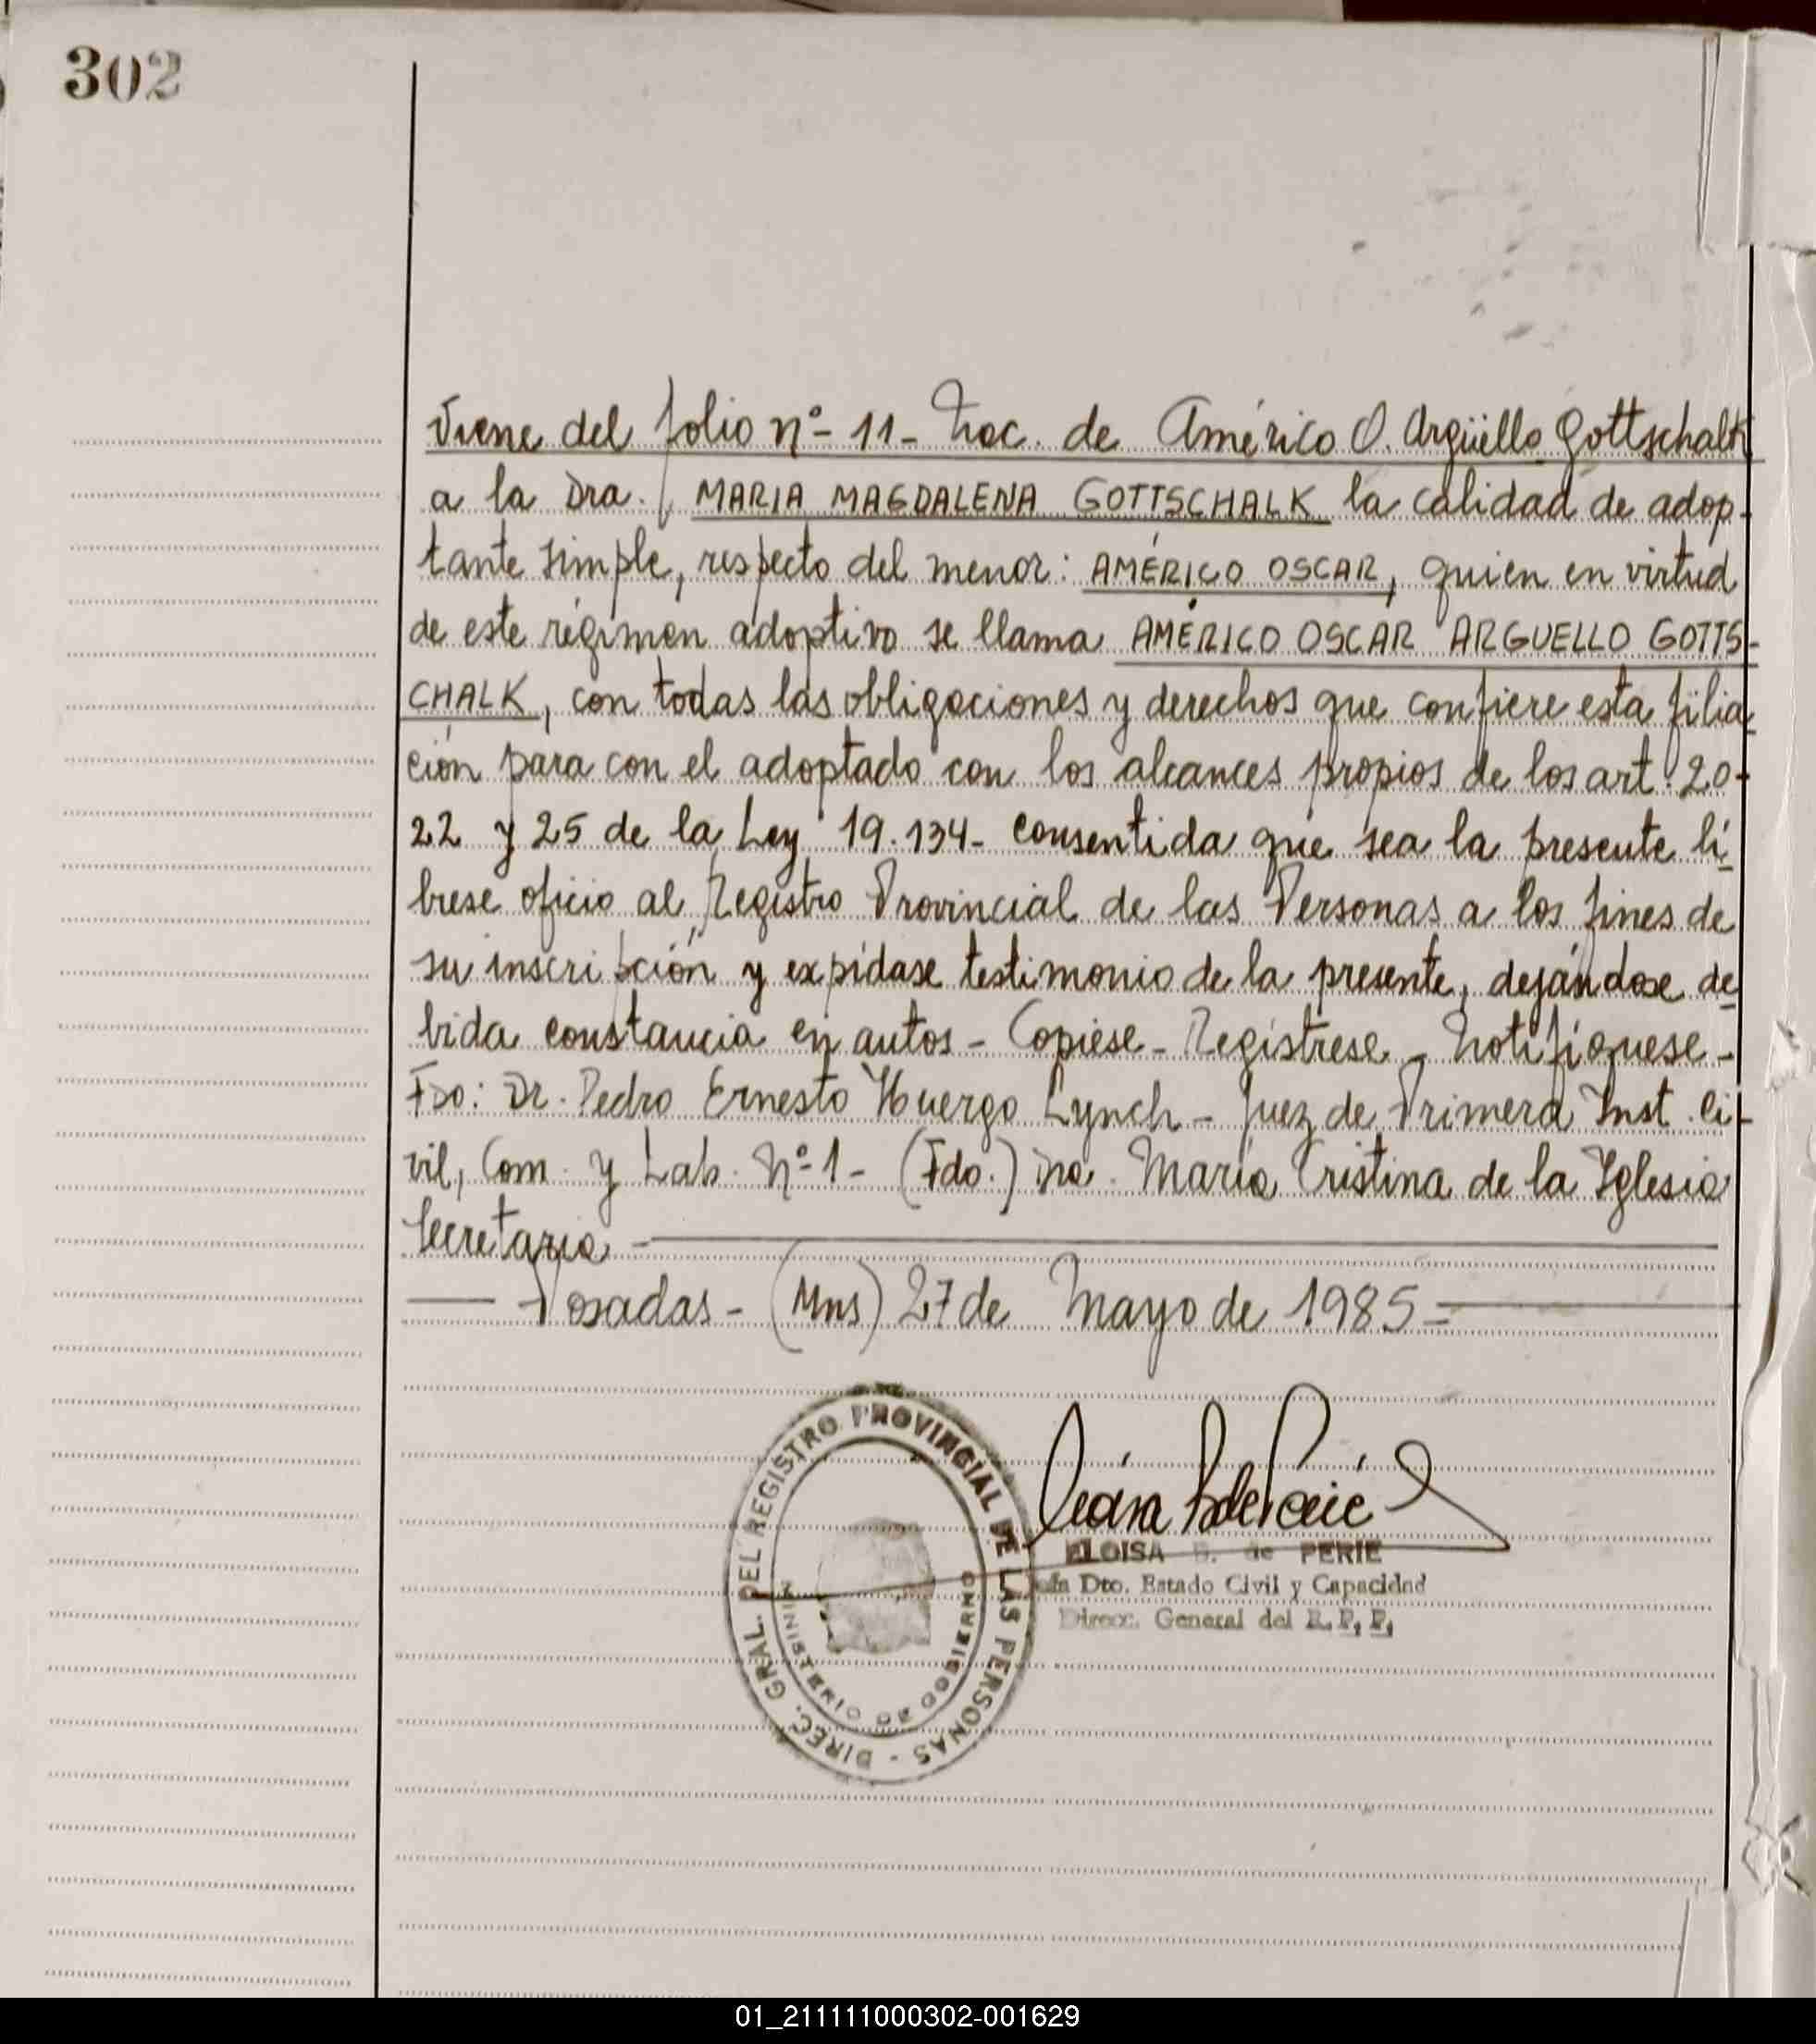 302
Viene del folio nº- 11- Nac. de Américo O. Argüello Gottschalk
a la Dra. MARIA MAGDALENA GOTTSCHALK la calidad de adop-
tante simple, respecto del menor: AMÉRICO OSCAR, quien en virtud
de este régimen adoptivo se llama AMÉRICO OSCAR ARGUELLO GOTTS-
CHALK, con todas las obligaciones y derechos que confiere esta filia-
ción para con el adoptado con los alcances propios de los art. 20-
22 y 25 de la Ley 19.134- Consentida que sea la presente lí-
brese oficio al Registro Provincial de las Personas a los fines de
su inscripción y expídase testimonio de la presente, dejándose de-
bida constancia en autos - Copiese - Regístrese - Notifíquese -
Fdo: Dr. Pedro Ernesto Huergo Lynch - Juez de Primera Inst. Ci-
vil, Com. y Lab. Nº-1- (Fdo.) Dra. María Cristina de la Iglesia
Secretaria -
Posadas - (Mns) 27 de Mayo de 1985 -
DIREC. GRAL. DEL REGISTRO PROVINCIAL DE LAS PERSONAS -
MINISTERIO DE GOBIERNO
ELOISA B. de PERIE
Dto. Estado Civil y Capacidad
Direcc. General del R. P. P.
01_211111000302-001629